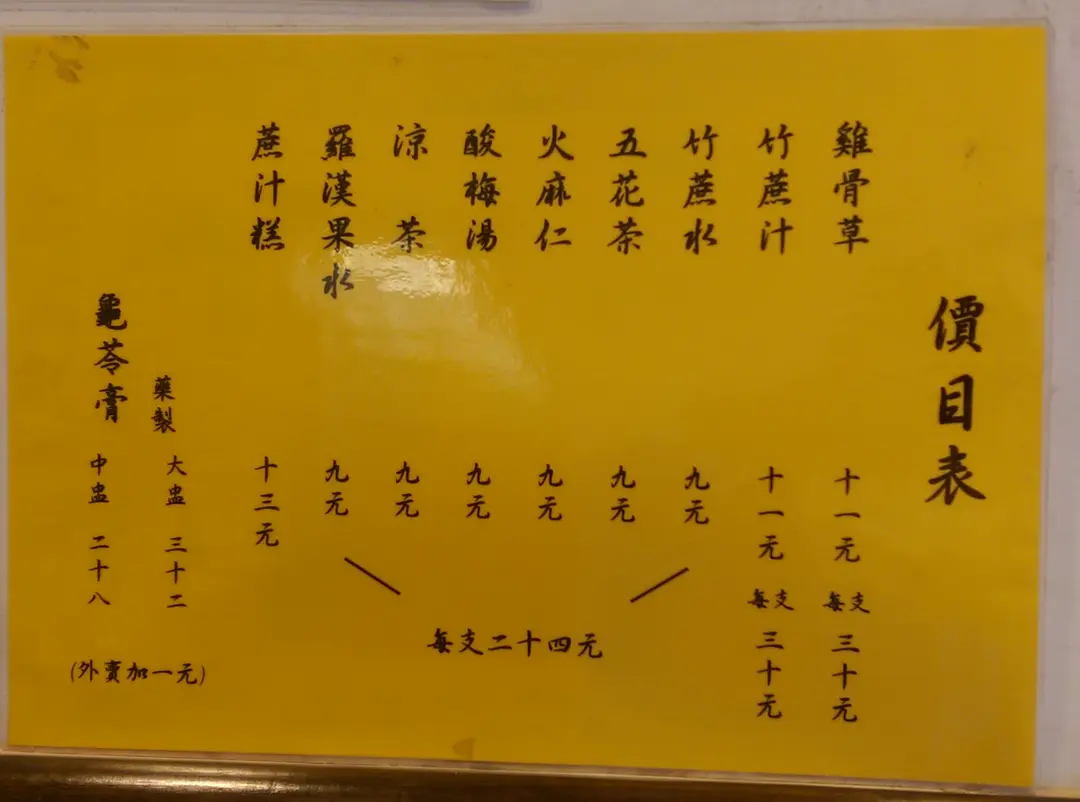 價目表
雞骨草 十一元 每支三十元
竹蔗汁 十一元 每支三十元
竹蔗水 九元
五花茶 九元
火麻仁 九元
酸梅湯 九元
涼茶 九元
羅漢果水 九元
每支二十四元
蔗汁糕 十三元
藥製 大盅 三十二
龜苓膏 中盅 二十八
(外賣加一元)